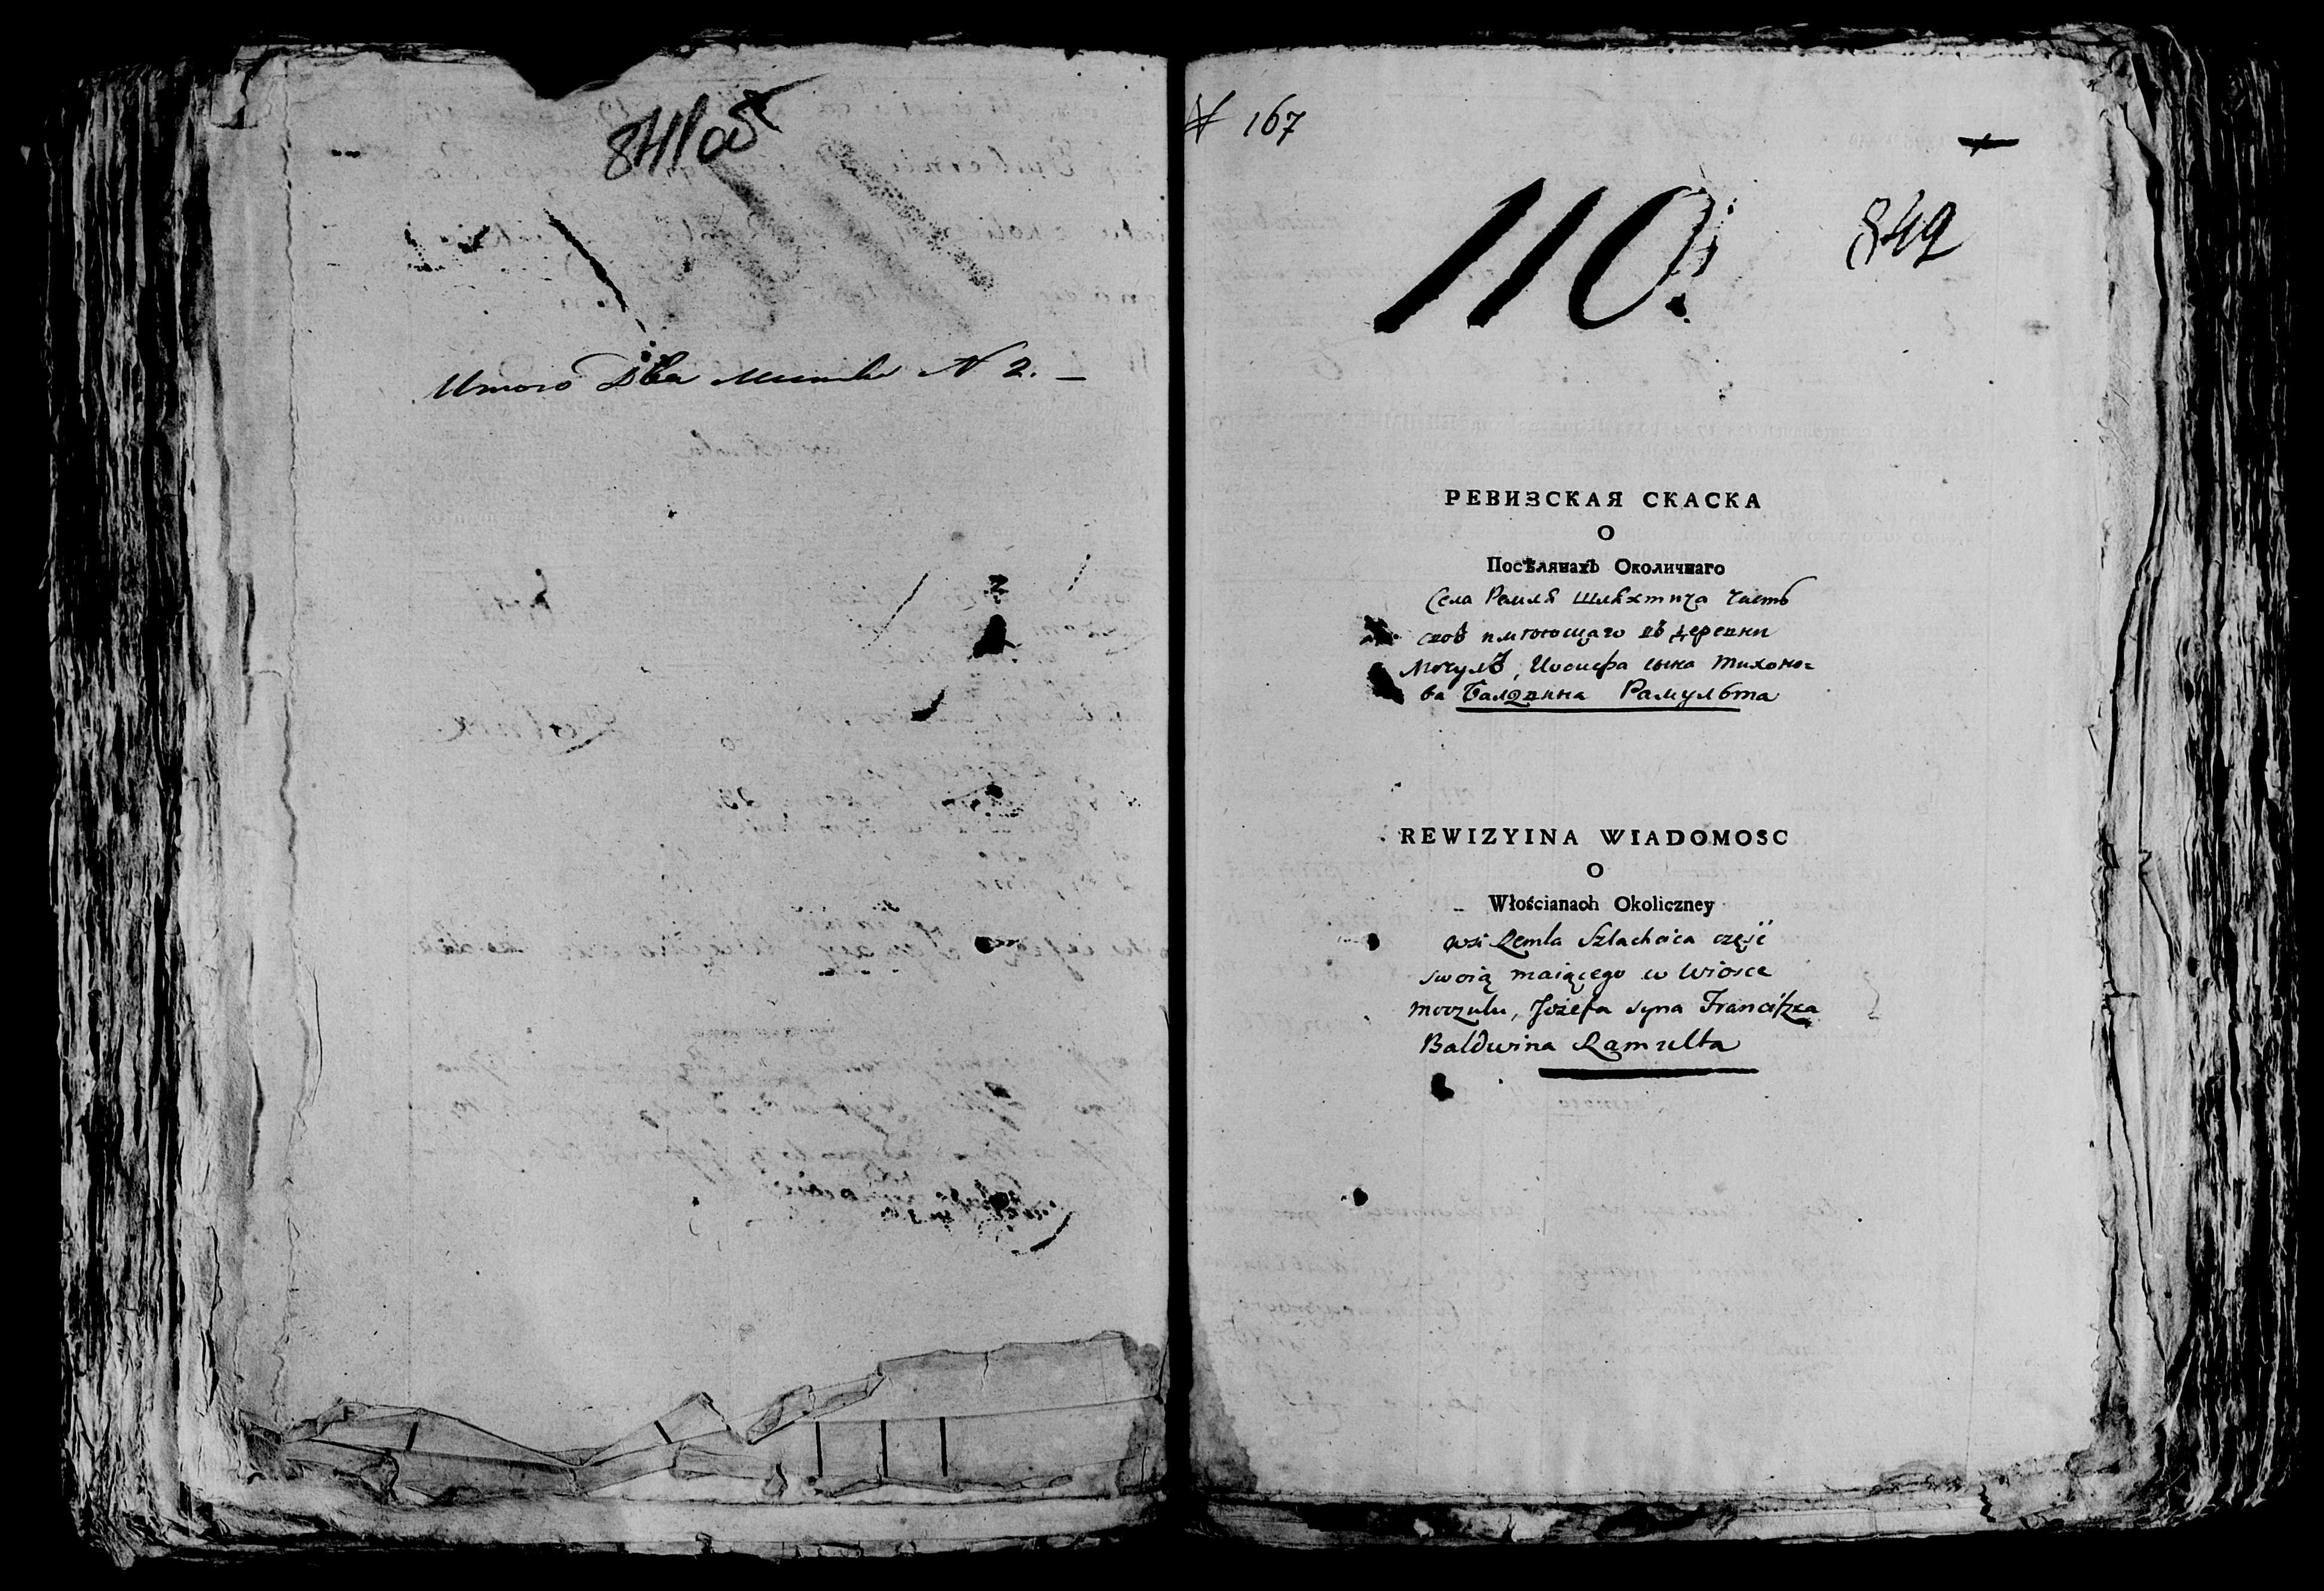 841 об
Итого два листа N 2. —
№ 167
110.
842
РЕВИЗСКАЯ СКАСКА
О
Поселянахъ Околичнаго
Села Ремля Шляхтича часть
своѣ имѣющаго въ деревни
Мочулѣ, Иосифа сына Тихоно=
ва Балдвина Рамульта
REWIZYINA WIADOMOSC
O
Włościanach Okoliczney
wsi Remla Szlachcica część
swoią maiącego w Wiosce
Moczulu, Jozefa syna Franciszka
Baldwina Ramulta